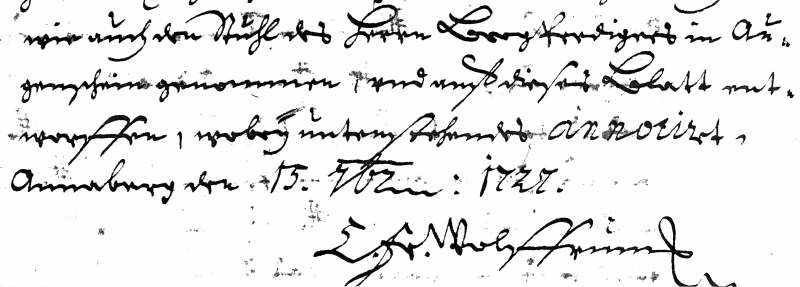 wie auch den Stuhl des Herrn Bergpredigers in Au-
genschein genommen, und auf dieses Blatt ent-
worffen, wobey untenstehendes annotirt,
Annaberg den 15. 7br: 1727.
C. Fr. Wolffrum